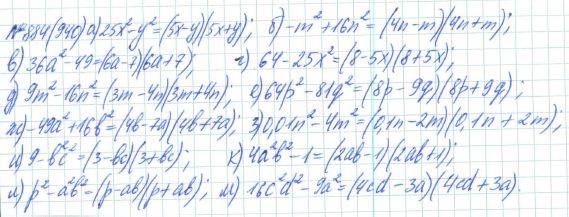 №884(940) а) 25x²-y²=(5x-y)(5x+y); б) -m²+16n²=(4n-m)(4n+m);
в) 36a²-49=(6a-7)(6a+7); г) 64-25x²=(8-5x)(8+5x);
д) 9m²-16n²=(3m-4n)(3m+4n); е) 64p²-81q²=(8p-9q)(8p+9q);
ж) -49a²+16b²=(4b-7a)(4b+7a); з) 0,01n²-4m²=(0,1n-2m)(0,1n+2m);
и) 9-b²c²=(3-bc)(3+bc); к) 4a²b²-1=(2ab-1)(2ab+1);
л) p²-a²b²=(p-ab)(p+ab); м) 16c²d²-9a²=(4cd-3a)(4cd+3a).